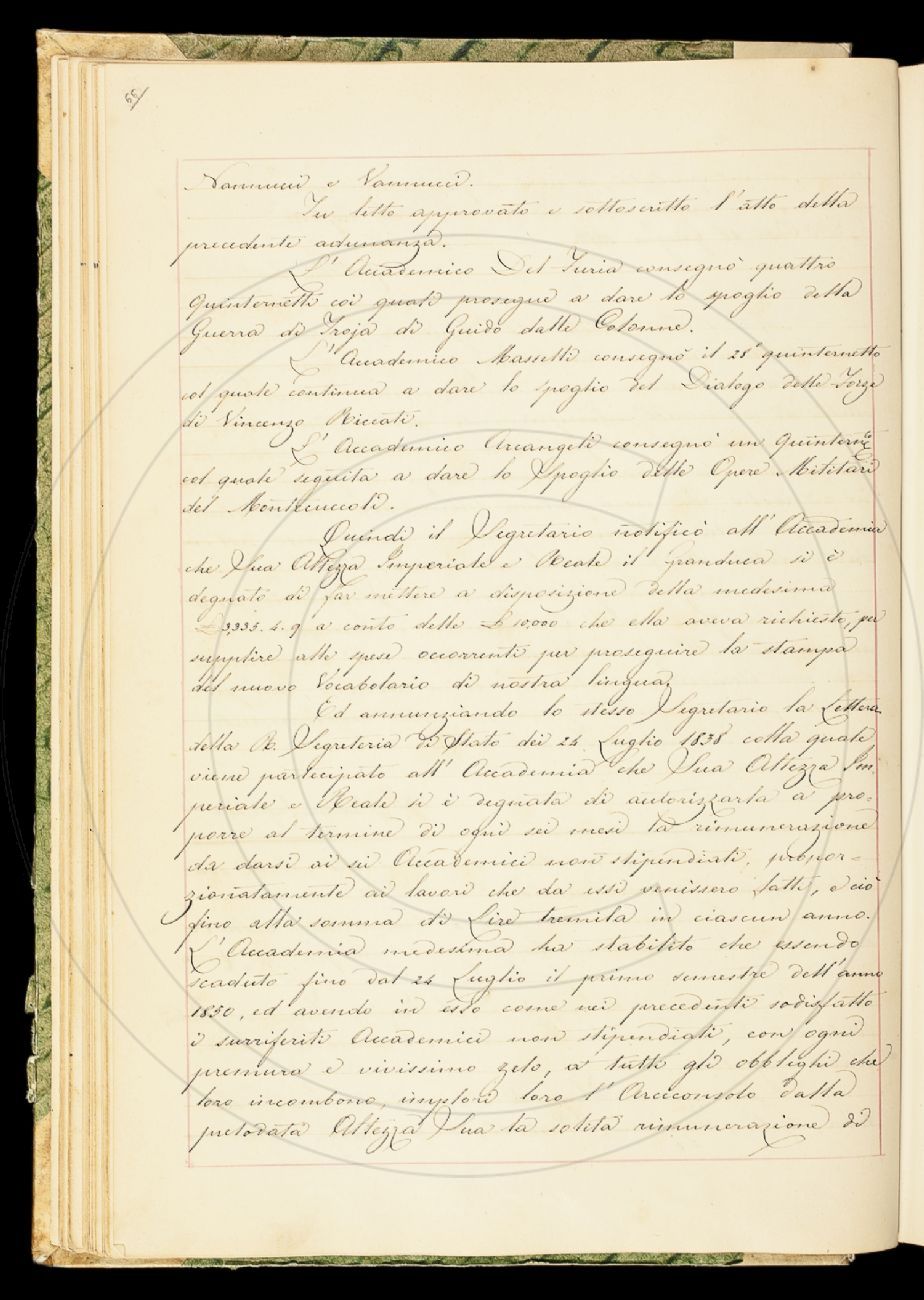 66
Nannucci e Vannucci.
Fu letto approvato e sottoscritto l'atto della
precedente adunanza.
L'Accademico Del Furia consegnò quattro
Quinternetti coi quali prosegue a dare lo spoglio della
Guerra di Troja di Guido dalle Colonne.
L'Accademico Masselli consegnò il 28° quinternetto
col quale continua a dare lo spoglio del Dialogo delle Forze
di Vincenzo Riccati.
L'Accademico Arcangeli consegnò un Quinternetto
col quale seguita a dare lo Spoglio delle Opere Militari
del Montecuccoli.
Quindi il Segretario notificò all'Accademia
che Sua Altezza Imperiale e Reale il Granduca si è
degnato di far mettere a disposizione della medesima
£ 3,335. 4. 9 a conto delle £ 10,000 che ella aveva richiesto, per
supplire alle spese occorrenti per proseguire la stampa
del nuovo Vocabolario di nostra lingua.
Ed annunziando lo stesso Segretario la Lettera
della R. Segreteria di Stato dei 24 Luglio 1838 colla quale
viene partecipato all'Accademia che Sua Altezza Im,
periale e Reale si è degnata di autorizzarla a pro=
porre al termine di ogni sei mesi la rimunerazione
da darsi ai sei Accademici non stipendiati, propor=
zionatamente ai lavori che da essi venissero fatti, e ciò
fino alla somma di Lire tremila in ciascun anno.
L'Accademia medesima ha stabilito che essendo
scaduto fino dal 24 Luglio il primo semestre dell'anno
1850, ed avendo in esso come nei precedenti sodisfatto
i surriferiti Accademici non stipendiati, con ogni
premura e vivissimo zelo, a tutti gli obblighi che
loro incombono, implori loro l'Arciconsolo dalla
prelodata Altezza Sua la solita rimunerazione di